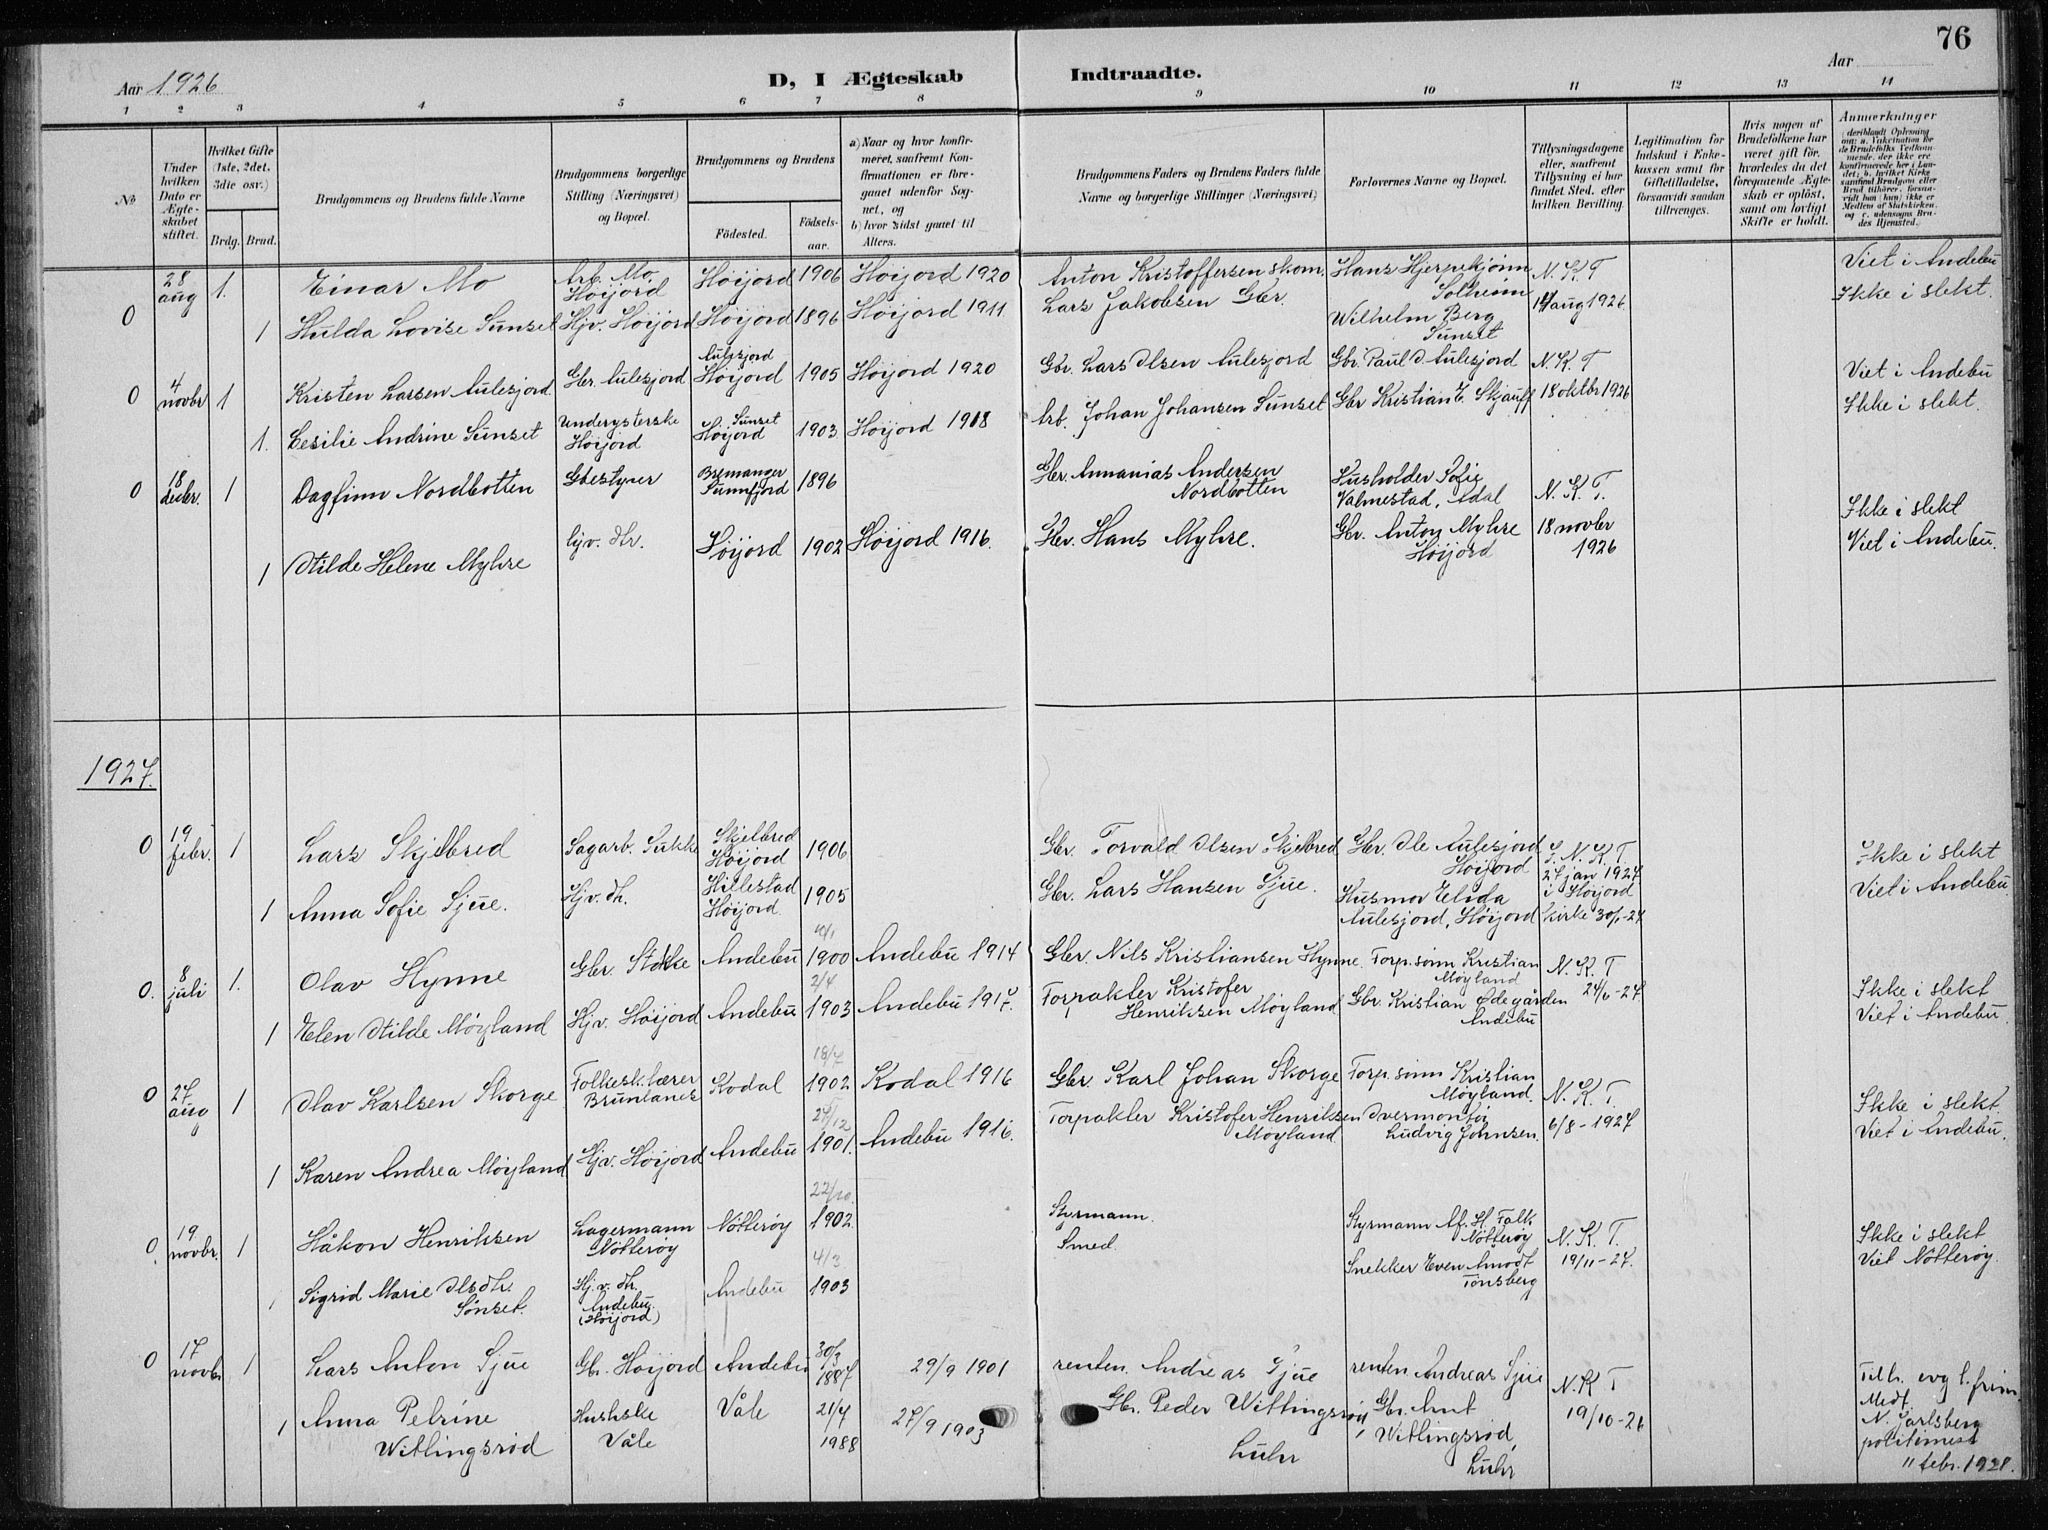 76
Aar 1926
D, I Ægteskab Indtraadte.
Aar
1 2 3 4 5 6 7 8 9 10 11 12 13 14
No
Under hvilken Dato er Ægteskabet stiftet.
Hvilket Gifte (1ste, 2det, 3die osv.)
Brdg. Brud.
Brudgommens og Brudens fulde Navne
Brudgommens borgerlige Stilling (Næringsvei) og Bopæl.
Brudgommens og Brudens
Födested.
Födsels-aar.
a) Naar og hvor konfirmeret, saafremt Konfirmationen er foregaaet udenfor Sognet, og
b) hvor sidst gaaet til Alters.
Brudgommens Faders og Brudens Faders fulde Navne og borgerlige Stillinger (Næringsvei)
Forlovernes Navne og Bopæl.
Tillysningsdagene eller, saafremt Tillysning ei har fundet Sted, efter hvilken Bevilling.
Legitimation for Indskud i Enkekassen samt for Giftetilladelse, forsaavidt saadan tiltrænges.
Hvis nogen af Brudefolkene har været gift før, hvorledes da det foregaaende Ægteskab er opløst, samt om lovligt Skifte er holdt.
Anmerkninger
0 28 aug 1. Einar Mo Arb. Mo, Höijord Höijord 1906 Höijord 1920 Anton Kristoffersen skom. Hans Hjerpekjönn Solheim N. K. T 14 aug 1926 Viet i Andebu
1 Hulda Lovise Sunset Hjv. Höijord Höijord 1896 Höijord 1911 Lars Jakobsen Gbr. Wilhelm Berg Sunset Ikke i slekt.
0 4 novbr 1 Kristen Larsen Aulesjord Gbr. Aulesjord Aulesjord Höijord 1905 Höijord 1920 Gbr. Lars Olsen Aulesjord Gbr. Paul O. Aulesjord N. K. T 18 oktbr 1926 Viet i Andebu
1. Cesilie Andrine Sunset Underysterske Höijord Sunset Höijord 1903 Höijord 1918 Arb. Johan Johansen Sunset Gbr Kristian E. Skjauff Ikke i slekt.
0 18 decbr. 1 Dagfinn Nordbotten Gbestyrer Bremanger Sunnfjord 1896 Gbr. Annanias Andersen Nordbotten Husholder Sofie Valmestad, Adal N. K. T. 18 novbr 1926 Ikke i slekt
1 Hilde Helene Myhre hjv. dtr. Höijord 1902 Höijord 1916. Gbr. Hans Myhre. Gbr. Anton Myhre Höijord Viet i Andebu.
1927.
0 19 febr. 1 Lars Skjelbred Sagarb. Sukke Skjelbred Höijord 1906 Gbr. Torvald Olsen Skjelbred Gbr. Ole Aulesjord Höijord N. K. T. 27 jan 1927 i Höijord kirke 30/1-27 Ikke i slekt
1 Anna Sofie Sjue. Hjv. dtr. Hillestad Höijord 1905 Gbr. Lars Hansen Sjue. Husmor Elida Aulesjord, Höijord Viet i Andebu.
0. 8 juli 1. Olav Hynne Gbr. Stokke Andebu 1900 Andebu 1914 Gbr. Nils Kristiansen Hynne. Forp. sönn Kristian Möyland N. K. T 24/6-27 Ikke i slekt
1 Elen Hilde Möyland Hjv. Höijord Andebu 2/4 1903 Andebu 1917. Forpakter Kristofer Henriksen Möyland Gbr. Kristian Ødegården Andebu Viet i Andebu.
0 27 aug 1 Olav Karlsen Skorge Folkesk.lærer Brunlanes Kodal 18/7 1902 Kodal 1916 Gbr. Karl Johan Skorge Forp. sönn Kristian Möyland. N. K. T. 6/8-1927 Ikke i slekt.
1 Karen Andrea Möyland Hjv. Höijord Andebu 27/12 1901. Andebu 1916. Forpakter Kristofer Henriksen Möyland Ludvig Johnsen. Viet i Andebu.
0. 19 novbr. 1 Håkon Henriksen Lagermann Nötteröy Nötteröy 22/10. 1902. Styrmann. Styrmann Af. H. Falk Nötteröy N. K. T. 19/11-27. Ikke i slekt
Sigrid Marie Olsdtr. Sønset. Hj.v. dtr. Andebu. (Höijord) Andebu 4/3 1903 Smed. Snekker Even Amodt Tönsberg Viet Nötteröy.
0 17 novbr 1 Lars Anton Sjue Gbr. Höijord Andebu 30/3 1887 29/9 1901 renten. Andreas Sjue renten Andreas Sjue N. K T 19/10-26 Tilh. evg l. frim Medf.
1 Anna Petrine Witlingsröd Hushske Våle Våle 21/7 1988 27/9 1903 Gbr. Peder Witlingsröd, Luhr Gbr. Ant Witlingsröd, Luhr N. Jarlsberg politimest 11 febr. 1928.